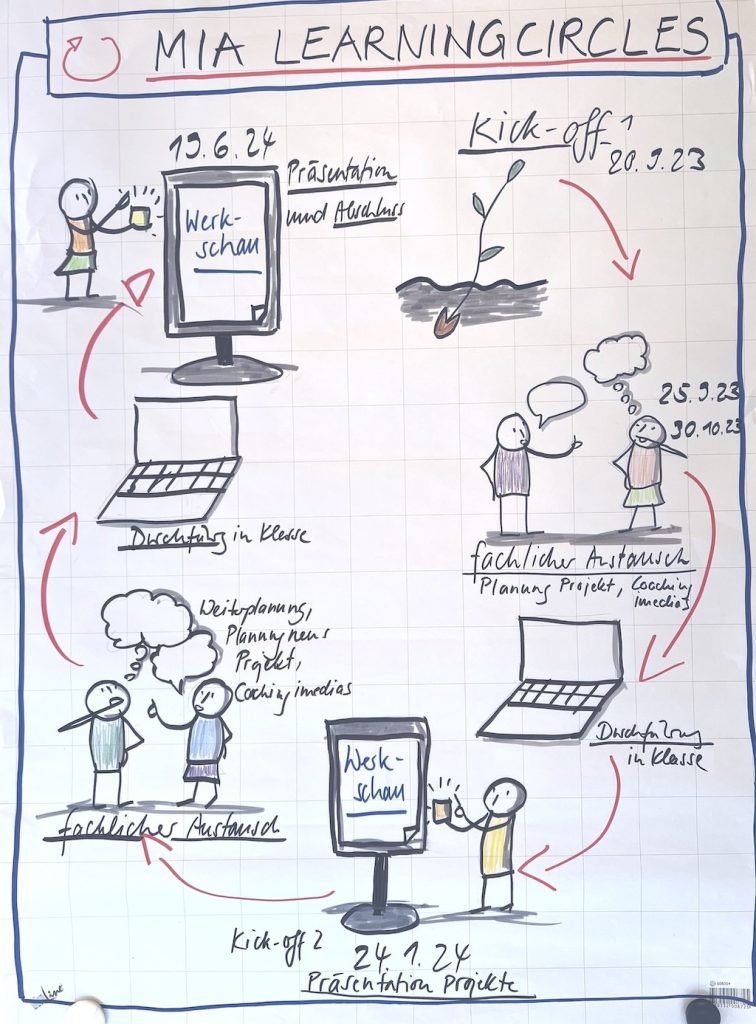 MIA LEARNINGCIRCLES
Kick-off 1
20.9.23
25.9.23
30.10.23
fachlicher Austausch
Planung Projekt, Coaching
imedias
Durchführung
in Klasse
Werk-
schau
Kick-off 2
24.1.24
Präsentation Projekte
fachlicher Austausch
Weiterplanung,
Planung neus
Projekt,
Coaching imedias
Durchführg in Klasse
19.6.24
Präsentation
und Abschluss
Werk-
schau